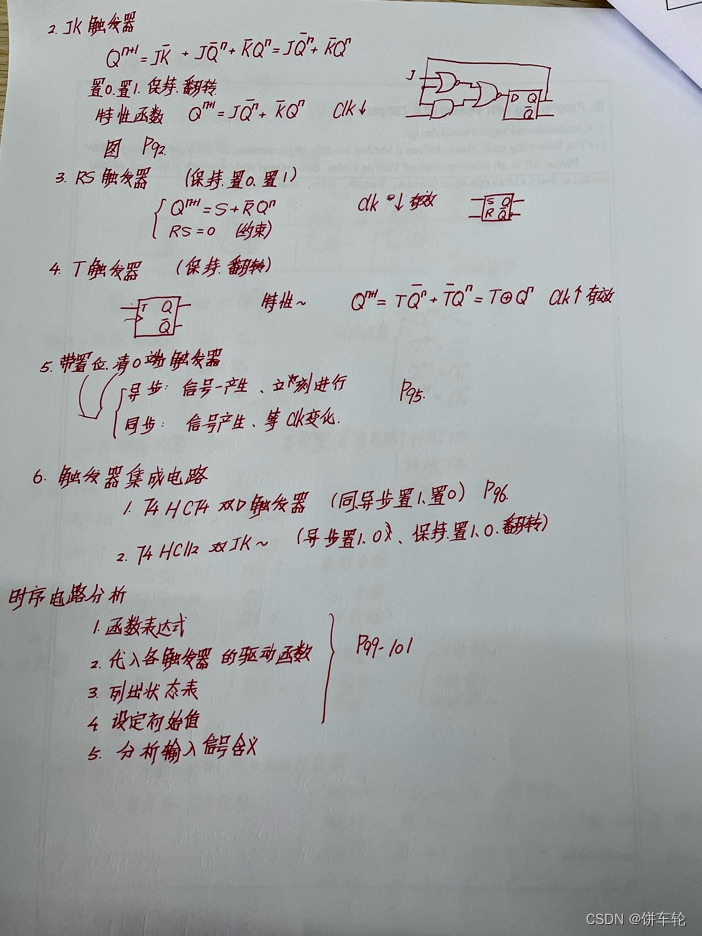 2. JK 触发器
Q^{n+1} = JK̄ + JQ̄^n + K̄Q^n = JQ̄^n + K̄Q^n
置0. 置1. 保持. 翻转
特性函数 Q^{n+1} = JQ̄^n + K̄Q^n Clk↓
图 P92.
J D Q Q̄
3. RS 触发器 (保持. 置0. 置1)
Q^{n+1} = S + R̄Q^n Clk ↓ 有效
RS = 0 (约束)
S Q R Q̄
4. T 触发器 (保持. 翻转)
T Q Q̄ 特性~ Q^{n+1} = TQ̄^n + T̄Q^n = T⊕Q^n Clk↑有效
5. 带置位. 清0端触发器
异步: 信号一产生、立刻进行 P95.
同步: 信号产生、等 Clk变化.
6. 触发器集成电路
1. 74HC74 双D触发器 (同异步置1、置0) P96.
2. 74HC112 双JK~ (异步置1.0)、保持.置1.0.翻转)
时序电路分析
1. 函数表达式
2. 代入各触发器的驱动函数 P99-101
3. 列出状态表
4. 设定初始值
5. 分析输入信号含义
CSDN @饼车轮